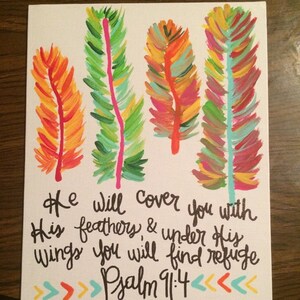 He will cover you with
His feathers & under His
wings you will find refuge
Psalm 91:4